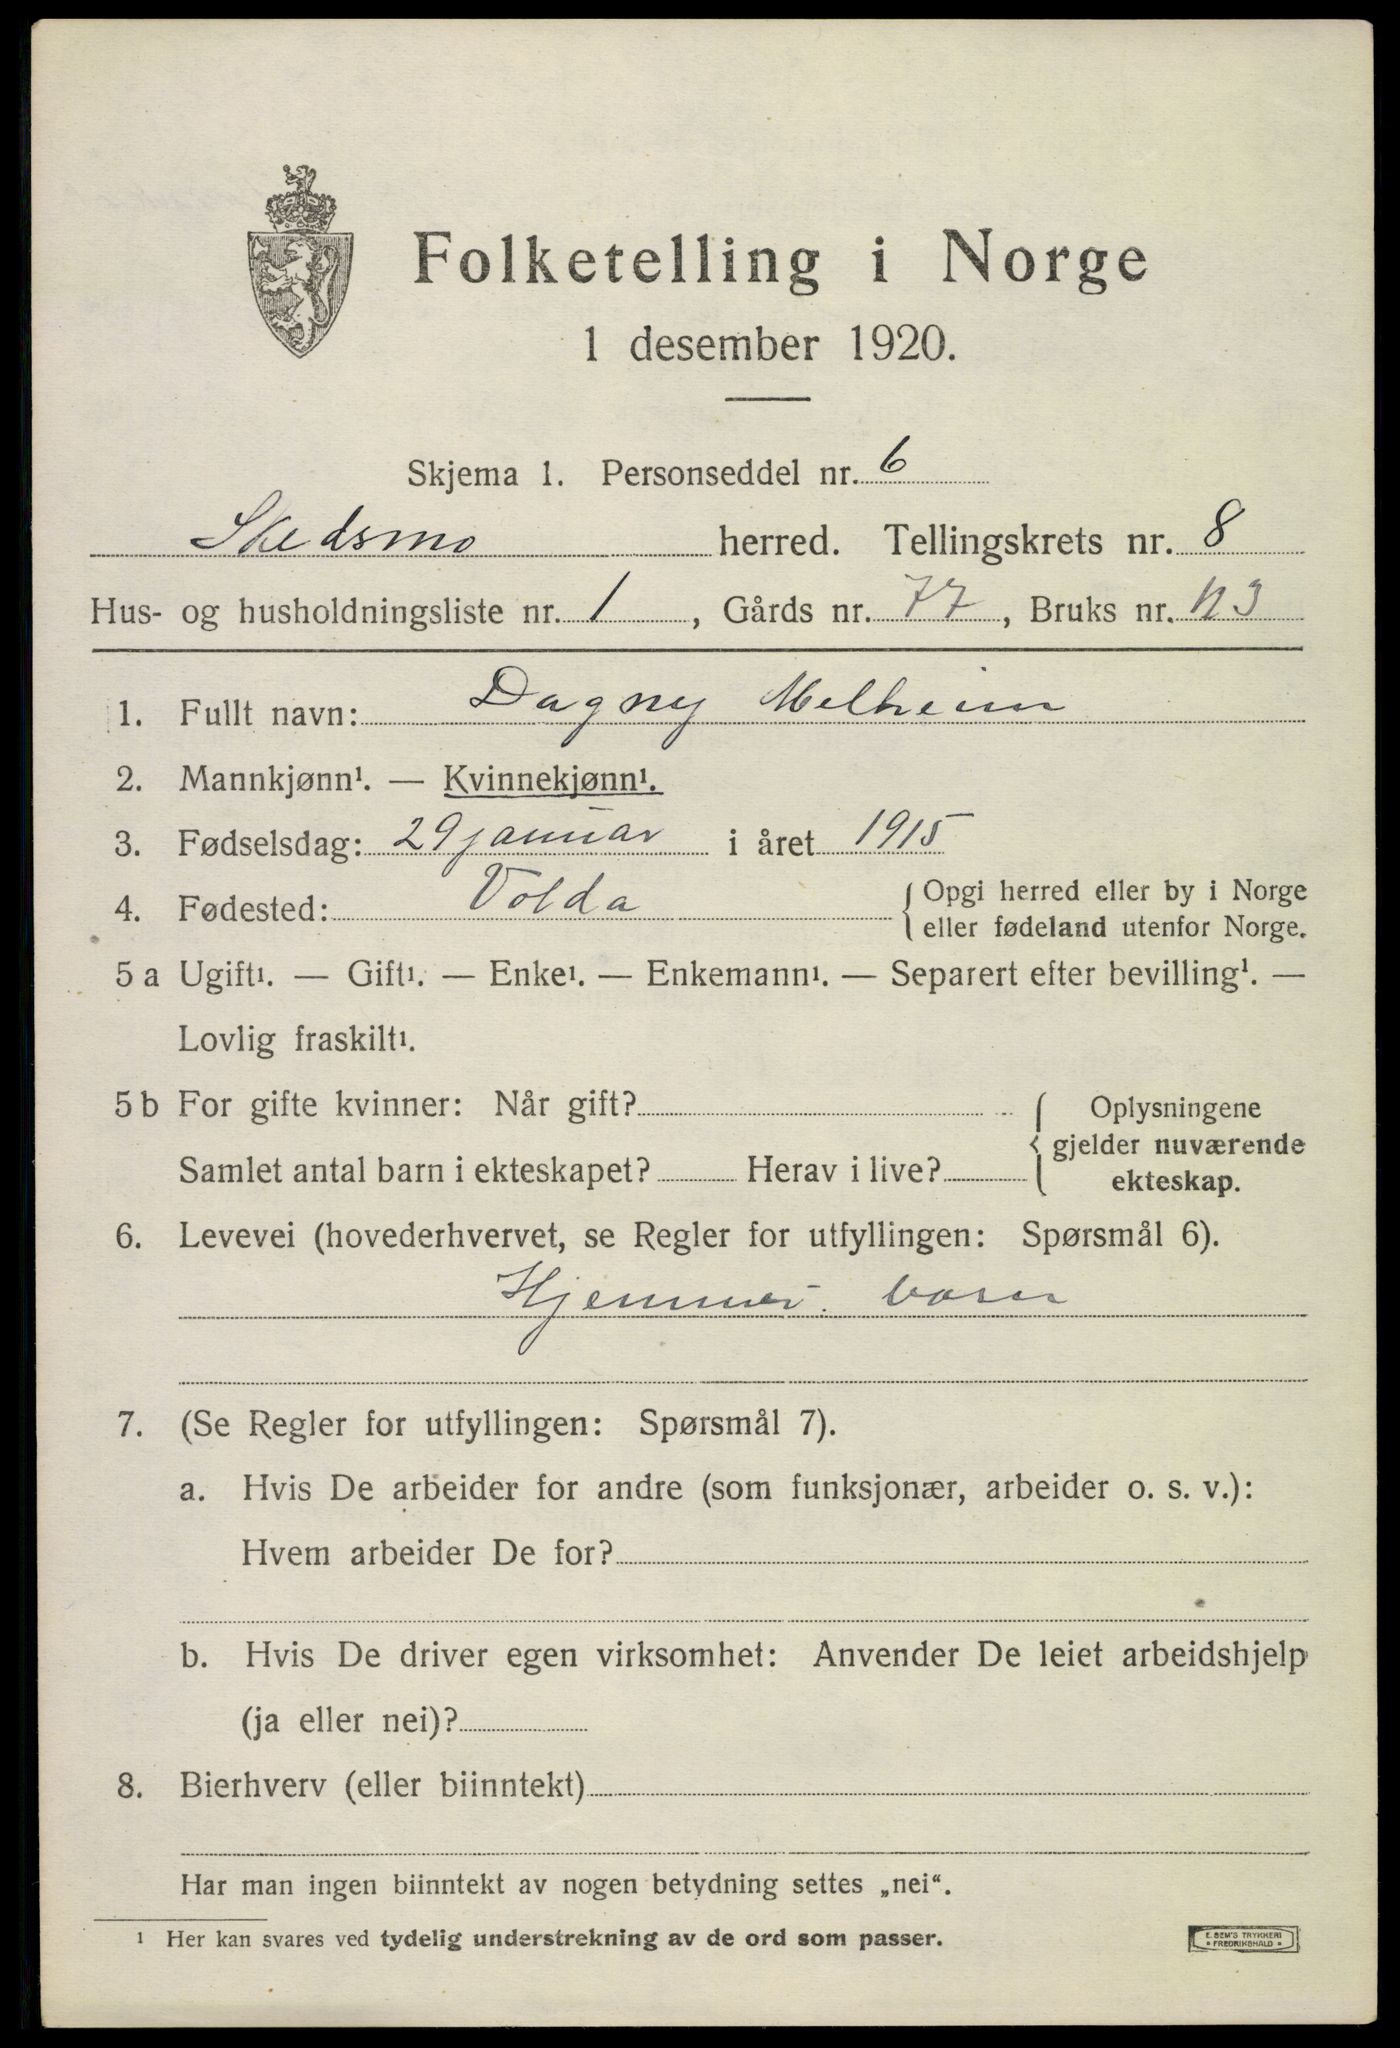 Folketelling i Norge
1 desember 1920.
Skjema 1. Personseddel nr. 6
Skedsmo herred. Tellingskrets nr. 8
Hus- og husholdningsliste nr. 1, Gårds nr. 77, Bruks nr.
1. Fullt navn: Dagny Melheim
2. Mannkjønn¹. — Kvinnekjønn¹.
3. Fødselsdag: 29 januar i året 1915
4. Fødested: Volda { Opgi herred eller by i Norge
eller fødeland utenfor Norge.
5 a Ugift¹. — Gift¹. — Enke¹. — Enkemann¹. — Separert efter bevilling¹. —
Lovlig fraskilt¹.
5 b For gifte kvinner: Når gift? { Oplysningene
gjelder nuværende
Samlet antal barn i ekteskapet? Herav i live? ekteskap.
6. Levevei (hovederhvervet, se Regler for utfyllingen: Spørsmål 6).
Hjemmev. barn
7. (Se Regler for utfyllingen: Spørsmål 7).
a. Hvis De arbeider for andre (som funksjonær, arbeider o. s. v.):
Hvem arbeider De for?
b. Hvis De driver egen virksomhet: Anvender De leiet arbeidshjelp
(ja eller nei)?
8. Bierhverv (eller biinntekt)
Har man ingen biinntekt av nogen betydning settes „nei“.
¹ Her kan svares ved tydelig understrekning av de ord som passer.
E. SEM'S TRYKKERI
• FREDRIKSHALD •